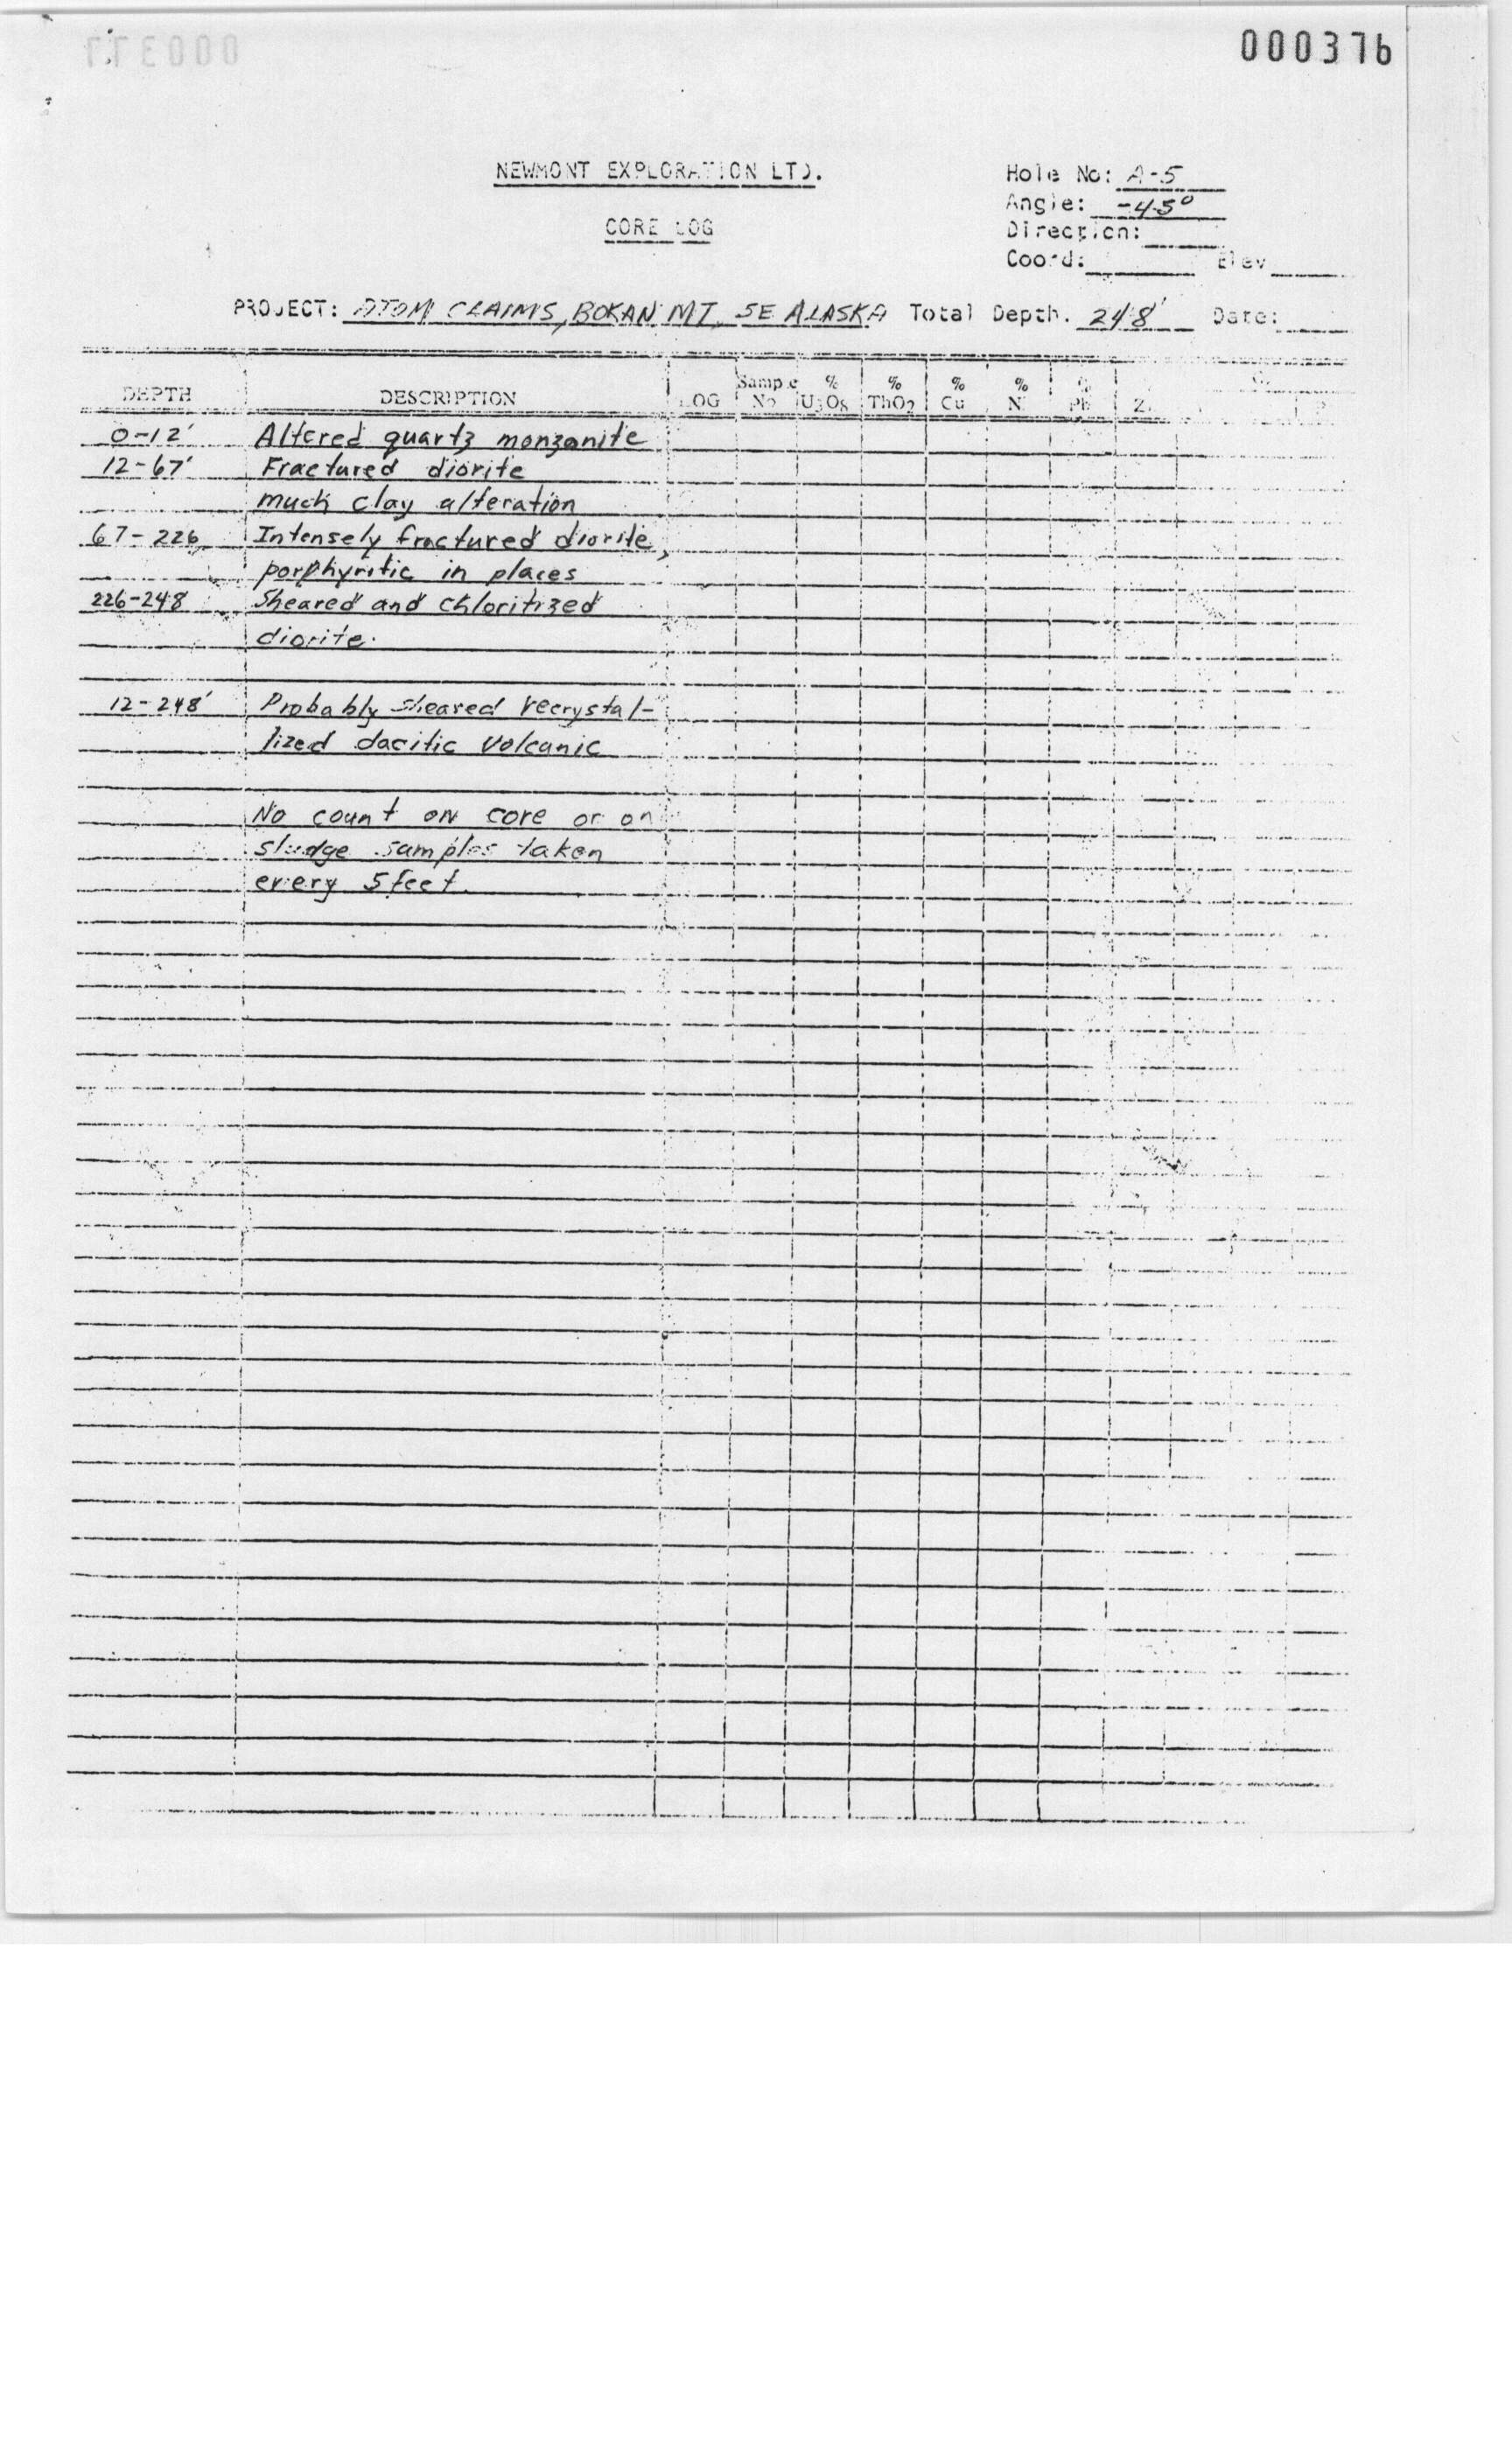 000376
NEWMONT EXPLORATION LTD.
CORE LOG
Hole No: A-5
Angle: -45°
Direction:
Coord: Elev
PROJECT: ATOM CLAIMS, BOKAN MT, SE ALASKA Total Depth. 248' Date:
DEPTH DESCRIPTION LOG Sample No % U3O8 % ThO2 % Cu % N % Pb
0-12' Altered quartz monzonite
12-67' Fractured diorite
much clay alteration
67-226 Intensely fractured diorite,
porphyritic in places
226-248 Sheared and chloritized
diorite.
12-248' Probably sheared recrystal-
lized dacitic volcanic
No count on core or on
sludge samples taken
every 5 feet.